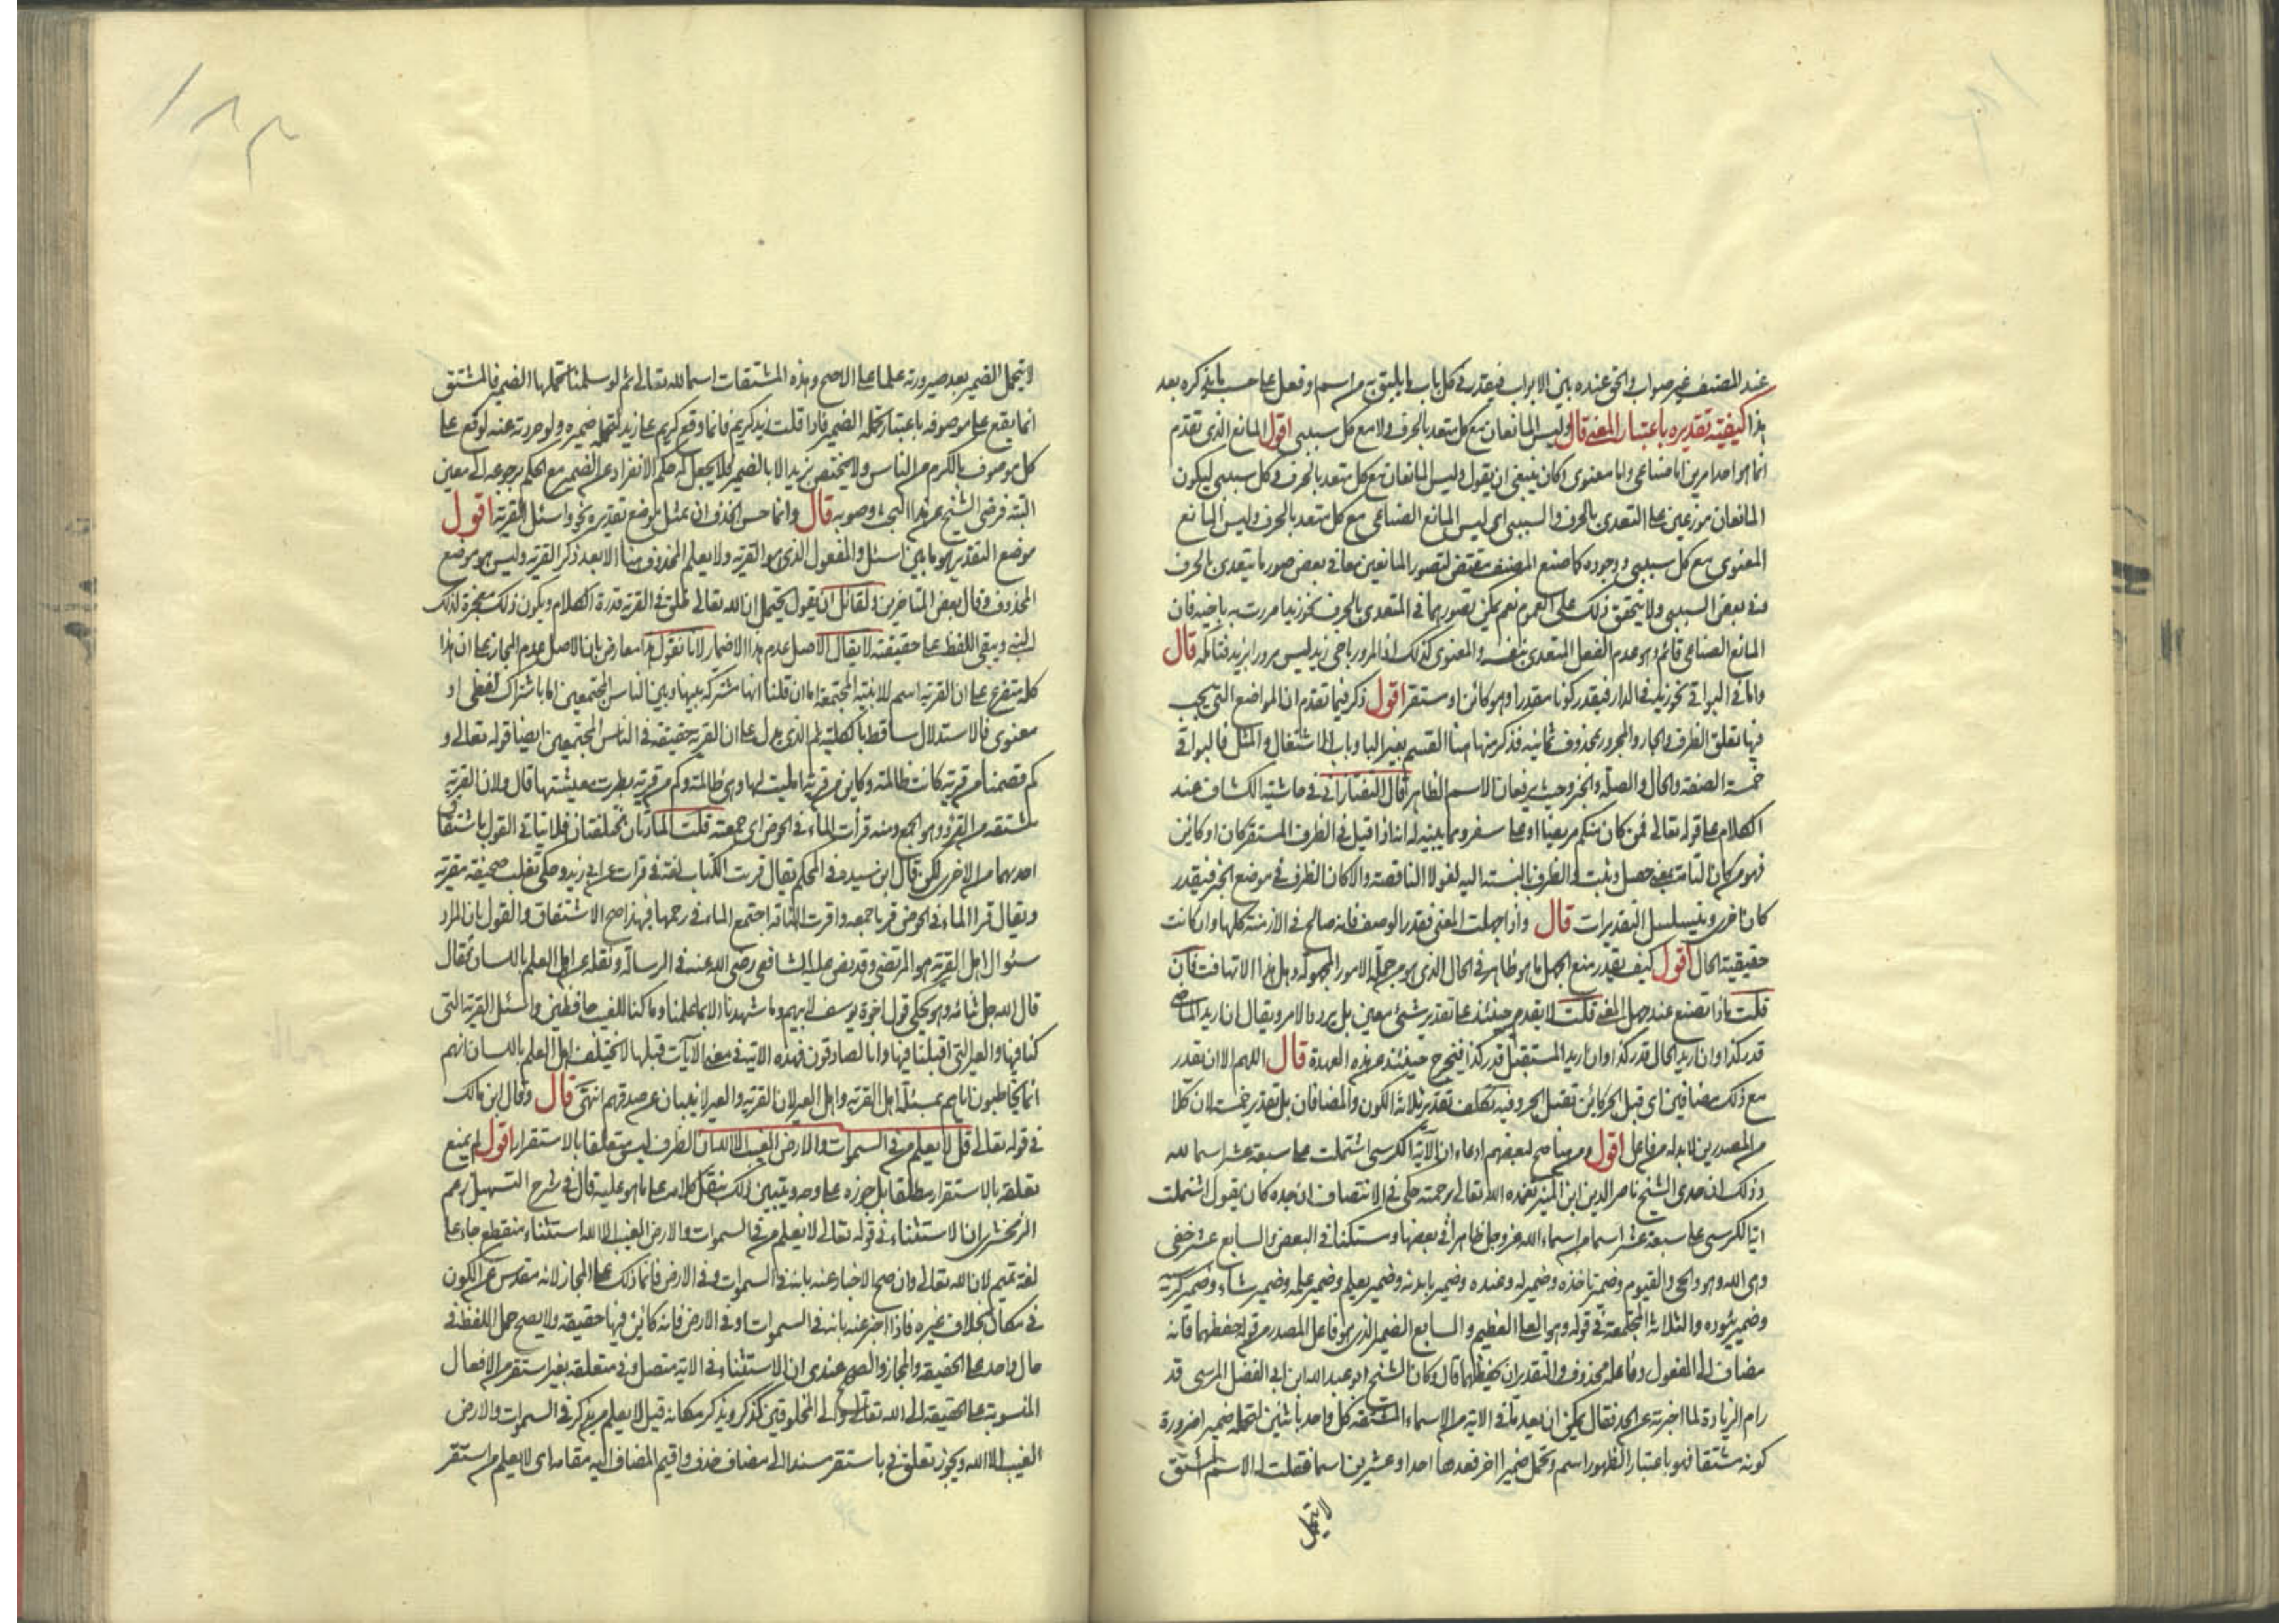 عند المصنف غير صواب والحق عنده بين الابواب فيقدر في كل باب ما يليق به من اسم وفعل على حسب ما يذكره بعد
هذا كيفية تقديره باعتبار المعنى قال وليس المانعان مع كل متعد بالحرف ولا مع كل سببي اقول المانع الذي تقدم
انما هو احد امرين اما صناعي واما معنوي وكان ينبغي ان يقول وليس المانعان مع كل متعد بالحرف وكل سببي ليكون
المانعان موزعين على التعدي بالحرف والسببي اي ليس المانع الصناعي مع كل متعد بالحرف وليس المانع
المعنوي مع كل سببي ووجوده كما صنع المصنف مقتض لتصور المانعين معا في بعض صور ما يتعدى بالحرف
وفي بعض السببي ولا يتحقق ذلك على العموم نعم يمكن تصورهما في المتعدي بالحرف نحو زيدا مررت به باخيه فان
المانع الصناعي قائم وهو عدم الفعل المتعدي بنفسه والمعنوي كذلك اذ المرور باخي زيد ليس مرورا بزيد فتامله قال
واما في البواقي نحو زيد في الدار فيقدر كونا مقدرا وهو كائن او مستقر اقول ذكر فيما تقدم ان المواضع التي يجب
فيها تعلق الظرف والجار والمجرور بمحذوف ثمانية فذكر منها هنا القسم بغير البا وباب الاشتغال والمثل فالبواقي
خمسة الصفة والحال والصلة والخبر وحيث يرفعان الاسم الظاهر قال التفتازاني في حاشية الكشاف عند
الكلام على قوله تعالى فمن كان منكم مريضا او على سفر ومما ينبه له انه اذا قيل في الظرف المستقر كان او كائن
فهو من كان التامة بمعنى حصل وثبت والظرف بالنسبة اليه لغو لا الناقصة والا كان الظرف في موضع الخبر فيقدر
كان اخرى ويتسلسل التقديرات قال واذا جهلت المعنى فقدر الوصف فانه صالح في الازمنة كلها وان كانت
حقيقته الحال اقول كيف يقدر مع الجهل ما هو ظاهر في الحال الذي هو من جملة الامور المجهولة وهل هذا الا تهافت فان
قلت ماذا تصنع عند جهل المعنى قلت لا يقدم حينئذ على تقدير شئ معين بل يردد الامر ويقال ان اريد الماضي
قدر كذا وان اريد الحال قدر كذا وان اريد المستقبل قدر كذا فيخرج حينئذ من هذه العهدة قال اللهم الا ان يقدر
مع ذلك مضافين اي قبل الحر كائن تقتبل الحر وفيه تكلف تقدير ثلاثة الكون والمضافان بل تقدير خمسة لان كلا
من المصدرين لا بد له من فاعل اقول ومن هنا صح لبعضهم ادعاء ان اية الكرسي اشتملت على سبعة عشر اسما لله
وذلك ان جدي الشيخ ناصر الدين ابن المنير تغمده الله تعالى برحمته حكى في الانتصاف ان جده كان يقول اشتملت
اية الكرسي على سبعة عشر اسما من اسماء الله عز وجل ظاهرا في بعضها ومستكنا في البعض والسابع عشر خفي
وهي الله وهو والحي والقيوم وضمير تاخذه وضمير له وعنده وضمير باذنه وضمير يعلم وضمير علمه وضمير شاء وضمير كرسيه
وضمير يئوده والثلاثة المجتمعة في قوله وهو العلي العظيم والسابع الضمير الذي هو فاعل المصدر من قوله حفظهما فانه
مضاف الى المفعول وفاعله محذوف والتقدير ان يحفظهما قال وكان الشيخ ابو عبد الله ابن ابي الفضل المرسي قد
رام الزيادة لما اخبرته عن الجد فقال يمكن ان يعد ما في الاية من الاسماء المشتقة كل واحد باثنين لتحمله ضميرا ضرورة
كونه مشتقا فهو باعتبار الظهور اسم وتحمل ضميرا اخر فعدها احدا وعشرين اسما فقلت له الاسم المشتق
لا يتحمل
لا يتحمل الضمير بعد صيرورته علما على الاصح وهذه المشتقات اسما لله تعالى ثم لو سلمنا تحملها الضمير فالمشتق
انما يقع على موصوفه باعتبار تحمله الضمير فاذا قلت زيد كريم فانما وقع كريم على زيد لتحمله ضميره ولو جردته عنه لوقع على
كل موصوف بالكرم من الناس ولا يختص بزيد الا بالضمير فلا يجعل له حكم الانفراد عن الضمير مع الحكم برجوعه الى معين
البتة فرضي الشيخ عن هذا البحث وصوبه قال وانما حسن الحذف ان يمثل موضع تقديره نحو واسئل القرية اقول
موضع التقدير هو ما بين اسئل والمفعول الذي هو القرية ولا يعلم المحذوف هنا الا بعد ذكر القرية وليس هو موضع
المحذوف وقال بعض المتاخرين ولقائل ان يقول يحتمل ان الله تعالى خلق في القرية قدرة الكلام ويكون ذلك معجزة لذلك
النبي ويبقى اللفظ على حقيقته لا يقال الاصل عدم هذا الاضمار لانا نقول هذا معارض بان الاصل عدم المجاز على ان هذا
كله متفرع على ان القرية اسم للابنية المجتمعة اما ان قلنا انها مشتركة بينها وبين الناس المجتمعين اما باشتراك لفظي او
معنوي فالاستدلال ساقط بالكلية ثم الذي يدل على ان القرية حقيقة في الناس المجتمعين ايضا قوله تعالى و
كم قصمنا من قرية كانت ظالمة وكاين من قرية امليت لها وهي ظالمة وكم من قرية بطرت معيشتها قال ولان القرية
مشتقة من القرؤ وهو الجمع ومنه قرأت الماء في الحوض اي جمعته قلت المادتان مختلفتان فلا يتاتى القول باشتقاق
احدهما من الاخرى لكن قال ابن سيده في المحكم يقال قريت الكتاب لغة في قرات عن ابي زيد وحكى ثعلب صحيفة مقرية
ويقال قرا الماء في الحوض قريا جمعه واقرت الناقة اجتمع الماء في رحمها فبهذا صح الاشتقاق والقول بان المراد
سئوال اهل القرية هو المرتضى وقد نص عليه الشافعي رضي الله عنه في الرسالة ونقله عن اهل العلم باللسان فقال
قال الله جل ثناؤه وهو يحكي قول اخوة يوسف لابيهم وما شهدنا الا بما علمنا وما كنا للغيب حافظين واسئل القرية التي
كنا فيها والعير التي اقبلنا فيها وانا لصادقون فهذه الاية في معنى الآيات قبلها لا يختلف اهل العلم باللسان انهم
انما يخاطبون اباهم بمسئلة اهل القرية واهل العير لان القرية والعير لا ينبيان عن صدقهم انتهى قال وقال ابن مالك
في قوله تعالى قل لا يعلم من في السموات والارض الغيب الا الله ان الظرف ليس متعلقا بالاستقرار اقول لم يمنع
تعلقه بالاستقرار مطلقا بل جوزه على وجه ويتبين ذلك بنقل كلامه على ما هو عليه قال في شرح التسهيل زعم
الزمخشري ان الاستثناء في قوله تعالى لا يعلم من في السموات والارض الغيب الا الله استثناء منقطع جاء على
لغة تميم لان الله تعالى وان صح الاخبار عنه بانه في السموات وفي الارض فانما ذلك على المجاز لانه مقدس عن الكون
في مكان بخلاف غيره فاذا اخبر عنه بانه في السموات او في الارض فانه كائن فيها حقيقة ولا يصح حمل اللفظ في
حال واحد على الحقيقة والمجاز والصحيح عندي ان الاستثناء في الاية متصل وفي متعلقة بغير استقر من الافعال
المنسوبة على الحقيقة الى الله تعالى والى المخلوقين كذكر ويذكر مكانه قيل لا يعلم من يذكر في السموات والارض
الغيب الا الله ويجوز تعلق في باستقر مسندا الى مضاف حذف واقيم المضاف اليه مقامه اي لا يعلم من استقر